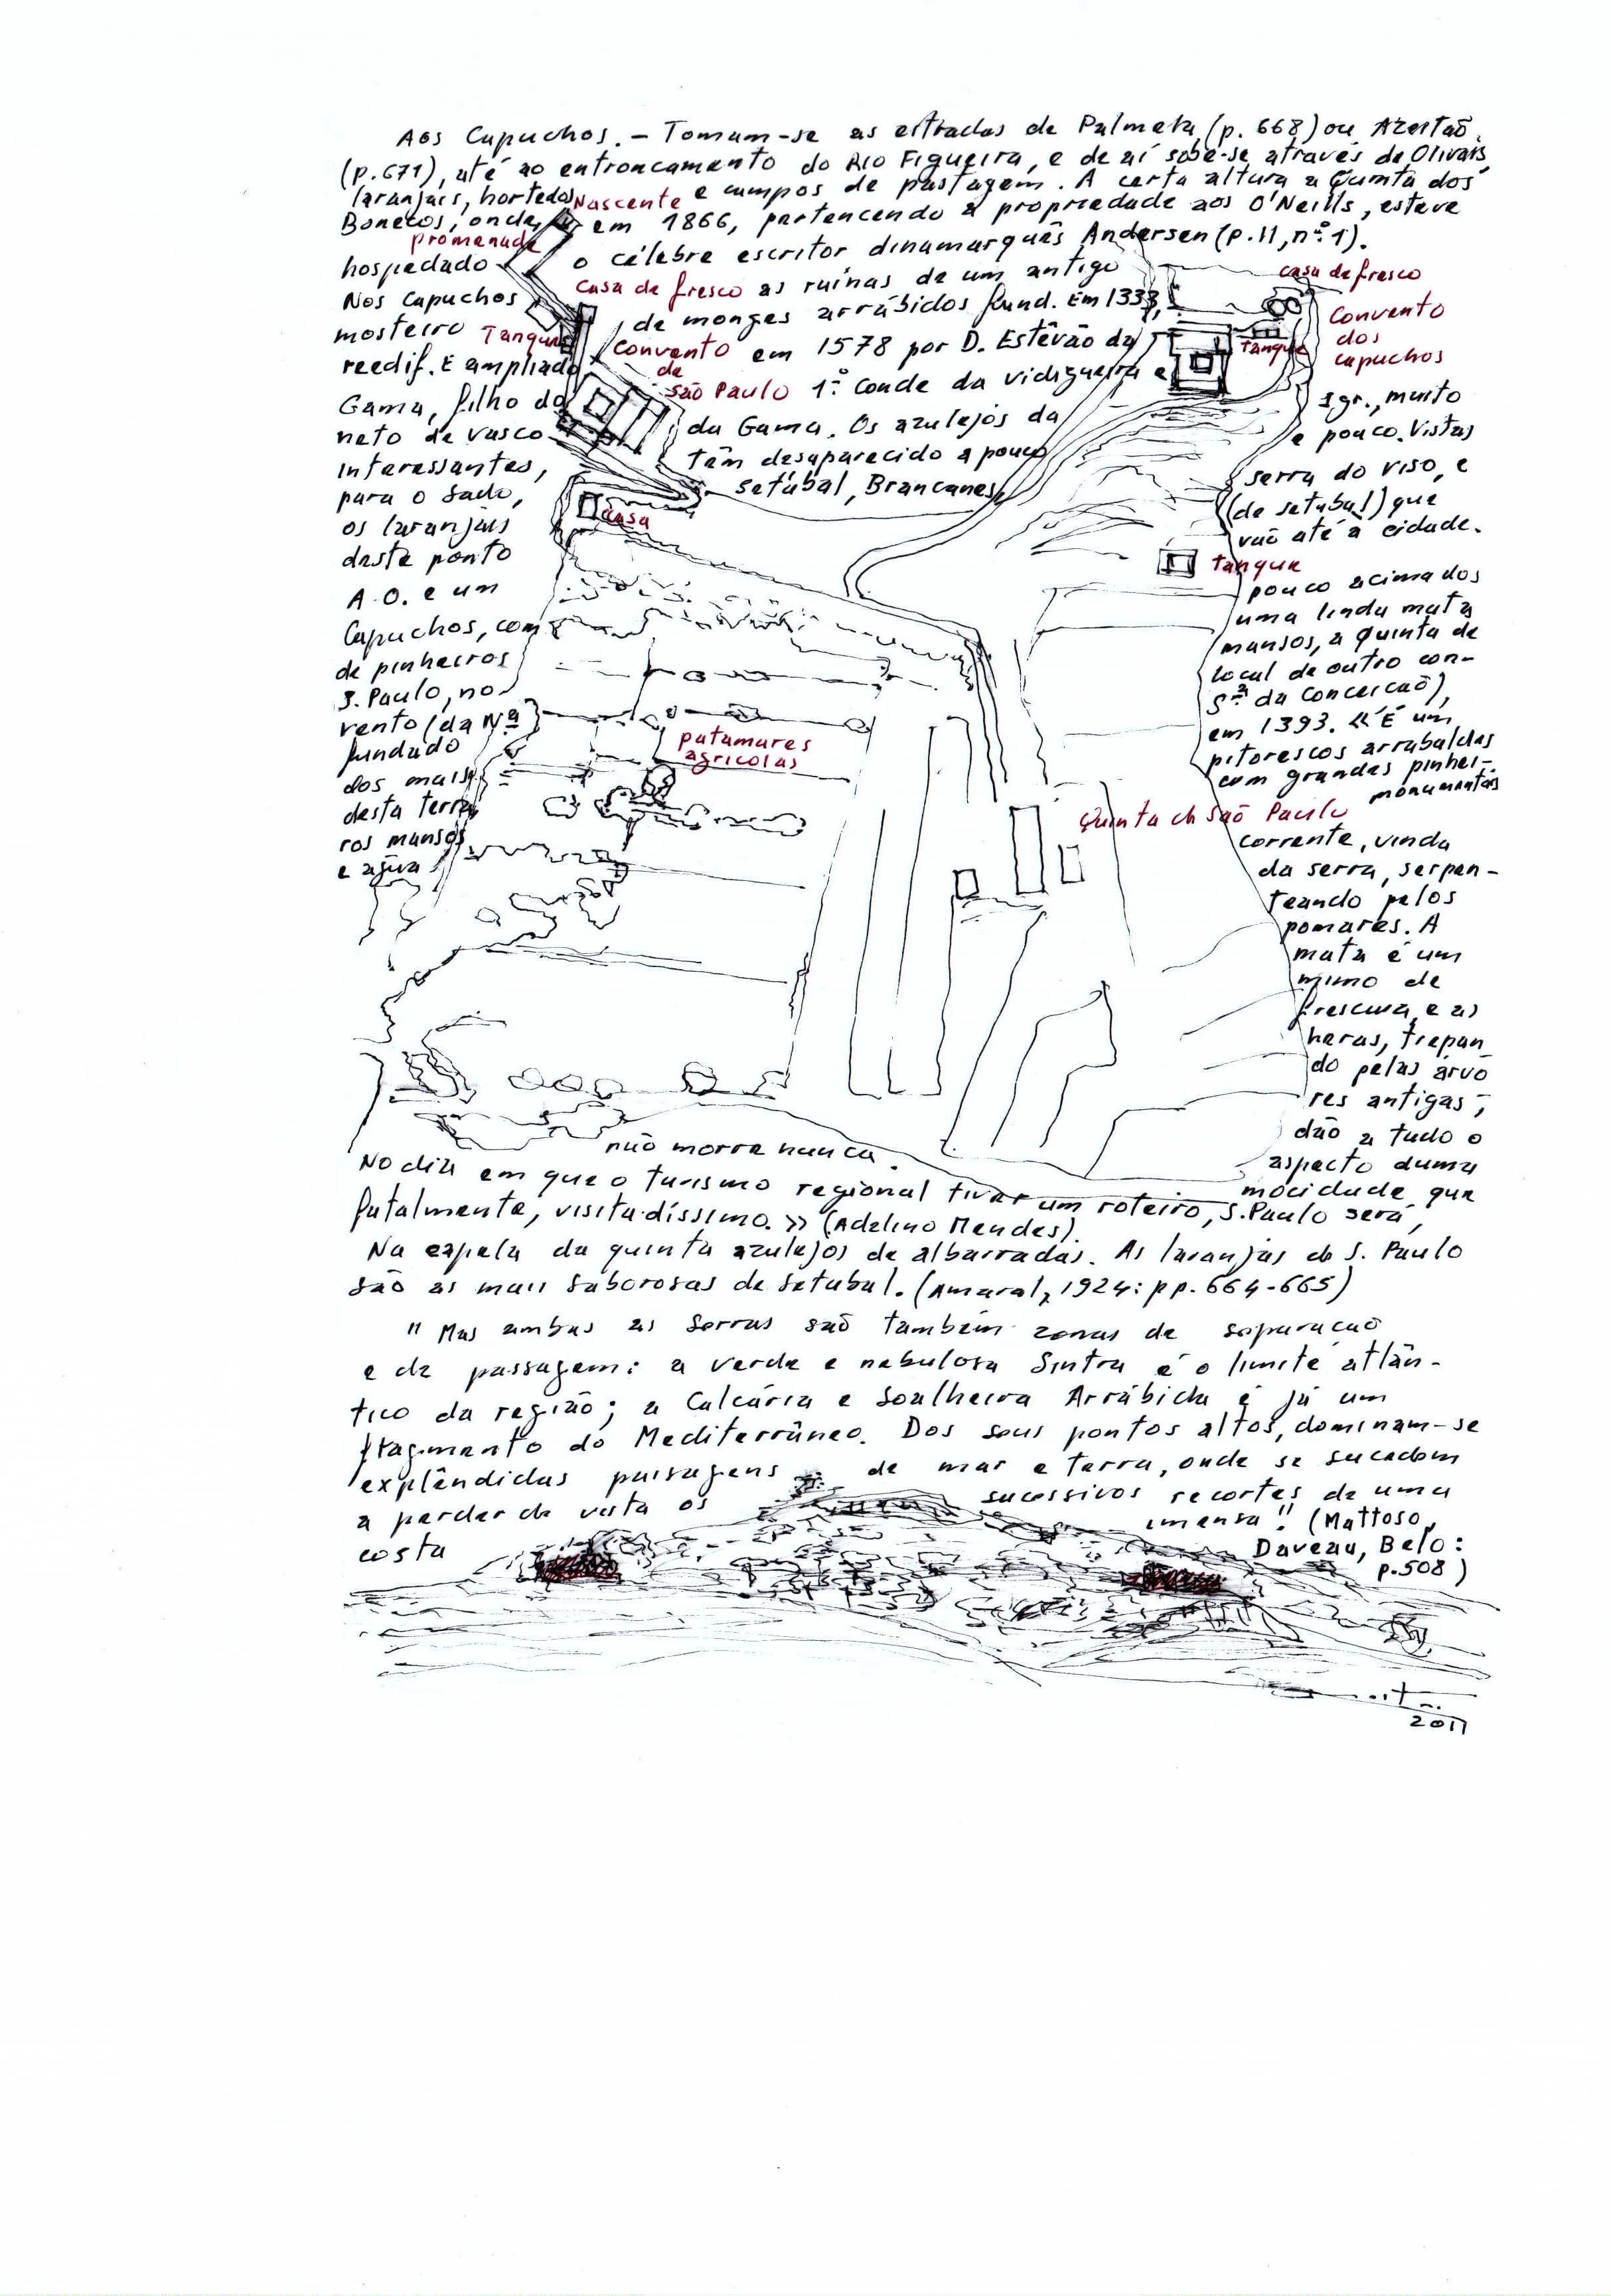 Aos Capuchos. – Tomam-se as estradas de Palmela (p. 668) ou Azeitão
(p. 671), até ao entroncamento do Rio Figueira, e de aí sobe-se através de Olivais
laranjais, hortedos e campos de pastagem. A certa altura a Quinta dos
Nascente
Bonecos, onde, em 1866, pertencendo a propriedade aos O'Neills, esteve
promenade
hospedado o célebre escritor dinamarquês Andersen (p. 11, nº. 1).
casa de fresco
casa de fresco
Nos Capuchos as ruínas de um antigo
mosteiro de monges arrábidos fund. Em 1333,
Tanque
Convento
dos
capuchos
Tanque
convento
de
são Paulo
reedif. E ampliado em 1578 por D. Estêvão da
Gama, filho do 1º. Conde da Vidigueira e
neto de Vasco da Gama. Os azulejos da igr., muito
interessantes, têm desaparecido a pouco e pouco. Vistas
para o Sado, setúbal, Brancanes, serra do Viso, e
casa
os laranjais (de setubal) que
deste ponto vão até à cidade.
Tanque
A O. e um pouco acima dos
Capuchos, com uma linda mata
de pinheiros mansos, a Quinta de
S. Paulo, no local de outro con-
vento (da Nª Sª da Conceicaõ),
fundado em 1393. «É um
patamares
agricolas
dos mais pitorescos arrabaldes
desta terra com grandes pinhei-
ros mansos monumentais
Quinta de são Paulo
e água corrente, vinda
da serra, serpen-
teando pelos
pomares. A
mata é um
mimo de
frescura, e as
heras, trepan
do pelas árvo
res antigas,
dão a tudo o
aspecto duma
mocidade que
não morre nunca.
No dia em que o turismo regional tiver um roteiro, S. Paulo será,
fatalmente, visitadíssimo.» (Adelino Mendes).
Na capela da quinta azulejos de albarradas. As laranjas de S. Paulo
são as mais saborosas de setubal. (Amaral, 1924: pp. 664-665)
"Mas ambas as serras são também zonas de separacaõ
e de passagem: a verde e nebulosa Sintra é o limite atlân-
tico da região; a Calcária e Soalheira Arrábida é já um
fragmento do Mediterrâneo. Dos seus pontos altos, dominam-se
explêndidas paisagens de mar e terra, onde se sucedem
a perder de vista os sucessivos recortes de uma
costa imensa" (Mattoso,
Daveau, Belo:
p. 508)
2011